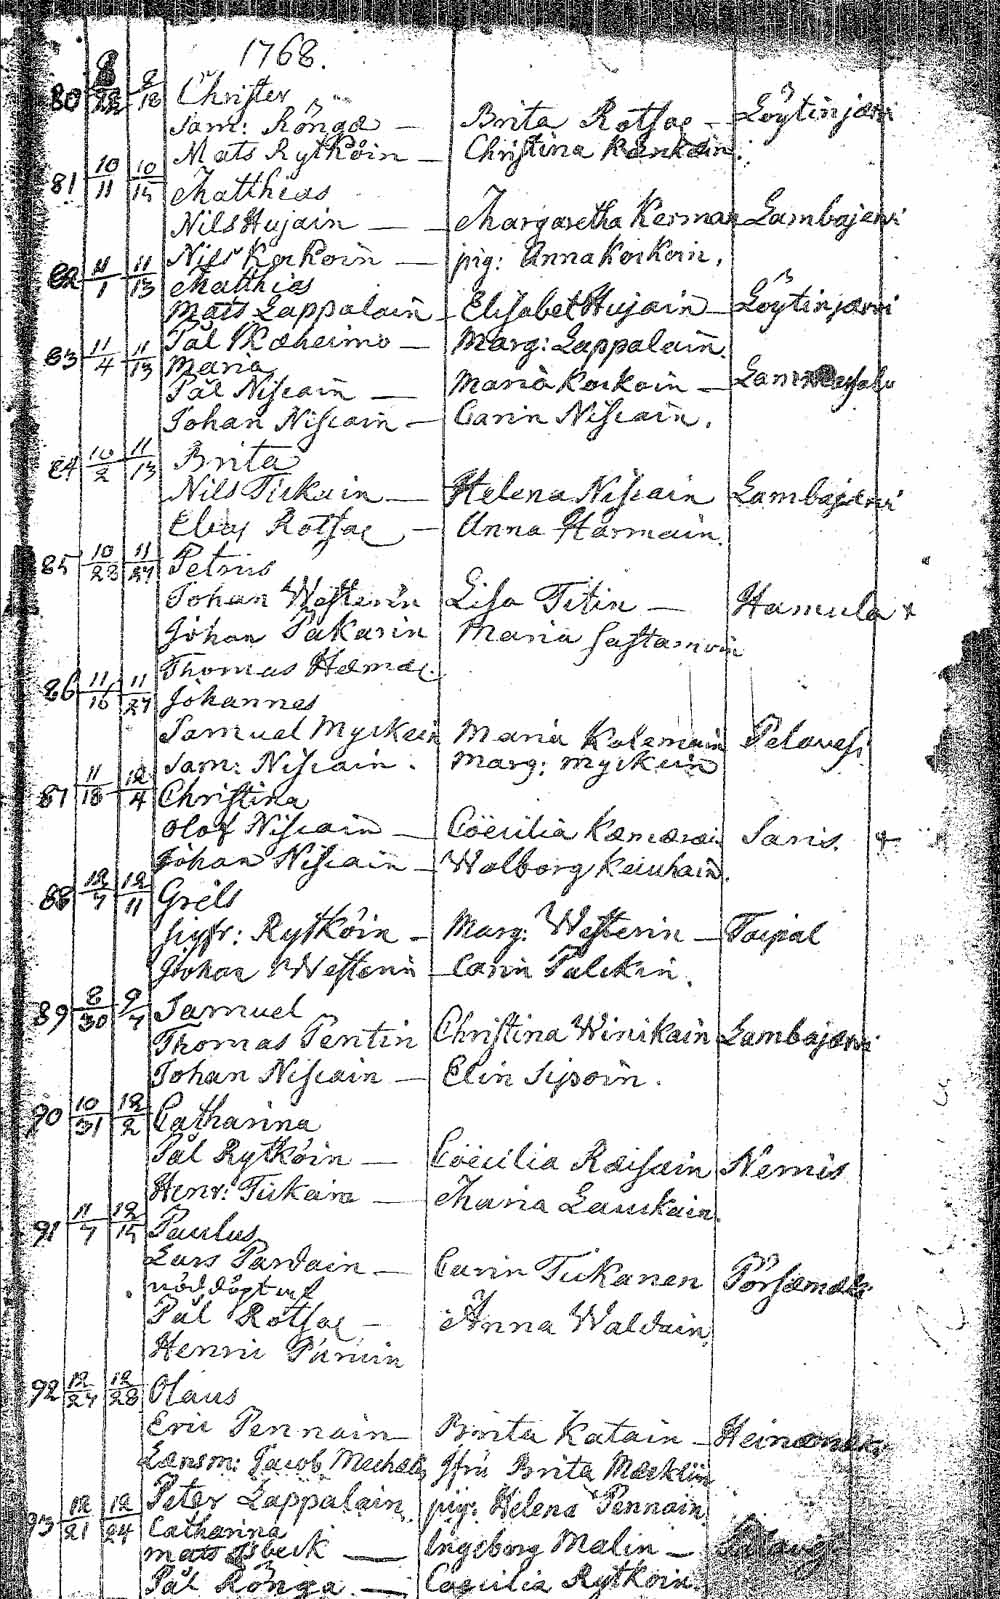 1768.
80 8/28 9/18 Christer
Sam: Rönga — Brita Rotsa — Löytinjærvi
Mats Rytköin — Christina Kænkäin.
81 10/11 10/15 Matthias
Nils Hujain — Margaretha Kerman Lambajærvi
Nils Korkoin — pig: Anna Korkoin.
82 11/1 11/13 Matthias
Mats Lappalain — Elisabet Hujain — Löytinjærvi
Pål Ikæheimo — Marg: Lappalain.
83 11/4 11/13 Maria
Pål Niscain — Maria Korkoin —
Johan Niscain — Carin Niscain.
84 10/2 11/13 Brita
Nils Tickain — Helena Niscain Lambajærvi
Elias Rotsa — Anna Harmain.
85 10/28 11/27 Petrus
Johan Westerin Lisa Titin — Hamula +
Johan Pakarin Maria Sastamoin
Thomas Hæmæl.
86 11/16 11/27 Johannes
Samuel Myckein Maria Kolemain Pelavesi
Sam: Niscain. Marg: Myckein
87 11/18 12/4 Christina
Olof Niscain — Cöecilia Kæmæræi Saris. +
Johan Niscain — Walborg Kauhain.
88 12/7 12/11 Grels
Sigfr: Rytköin — Marg: Westerin — Taipal
Johan Westerin — Carin Palckin.
89 8/30 9/7 Samuel
Thomas Pentin Christina Winikain Lambajærvi
Johan Niscain — Elin Sipoin.
90 10/31 12/2 Catharina
Pål Rytköin — Cöecilia Ræisæin Nemis
Henr: Tickain — Maria Lauckain.
91 11/7 12/15 Paulus
Lars Pardain — Carin Tickanen Pörsæmæki
nöddöpt utf
Pål Rotsa — Anna Waldain,
Henric Parvin
92 12/27 12/28 Olaus
Eric Pennain — Brita Katain — Heinæmæki
Lænsm: Jacob Jfru Brita Mæcklin
Peter Lappalain. pig: Helena Pennain.
93 12/21 12/24 Catharina
Mats Asbeck — Ingeborg Malin —
Pål Rönga. — Cöecilia Rytkoin.